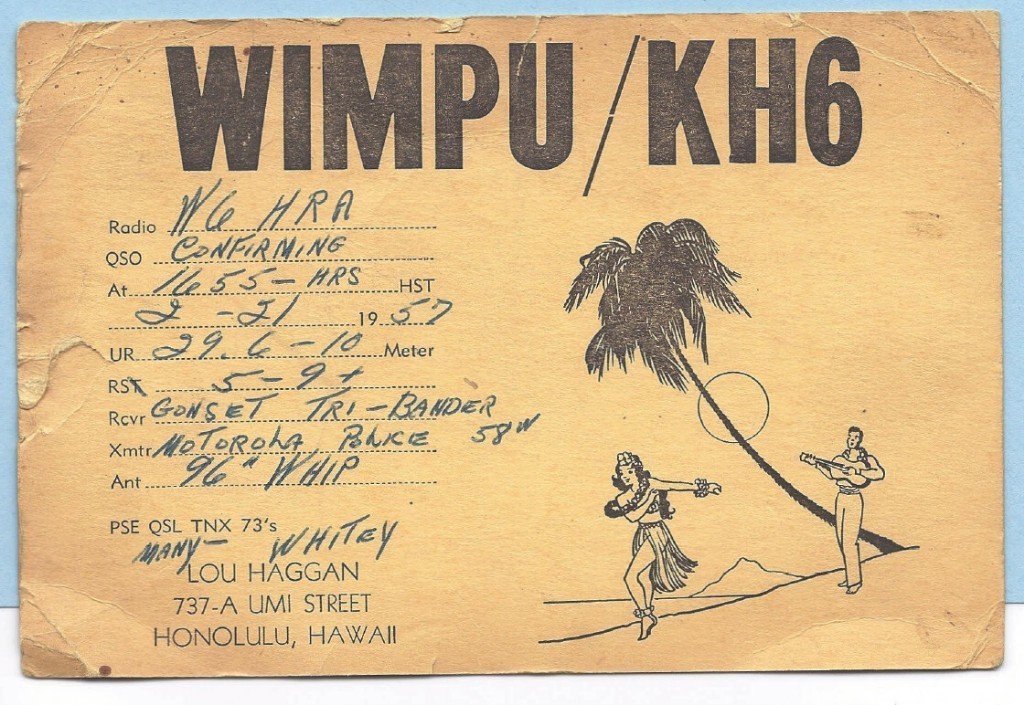 W1MPU/KH6
Radio W6 HRA
QSO CONFIRMING
At 1655-HRS HST
2-21 1957
UR 29.6-10 Meter
RST 5-9+
Rcvr GONSET TRI-BANDER
Xmtr MOTOROLA POLICE 58W
Ant 96" WHIP
PSE QSL TNX 73's
MANY- WHITEY
LOU HAGGAN
737-A UMI STREET
HONOLULU, HAWAII